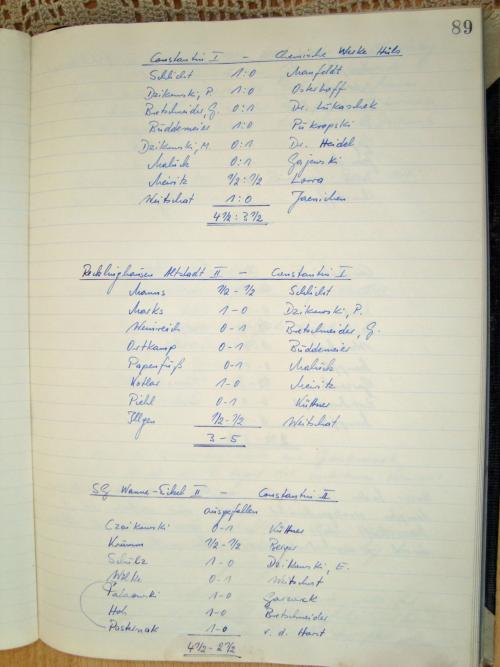 89
Constantin I - Chemische Werke Hüls
Schlicht 1:0 Manfeldt
Dzikowski, P. 1:0 Osterhoff
Bretschneider, G. 0:1 Dr. Lukaschek
Büddemeier 1:0 Pukropski
Dzikowski, M. 0:1 Dr. Heidel
Maluck 0:1 Gajewski
Meiritz 1/2:1/2 Lorra
Weitschat 1:0 Jaenichen
4 1/2:3 1/2
Recklinghausen Altstadt II - Constantin I
Manns 1/2-1/2 Schlicht
Marks 1-0 Dzikowski, P.
Weinreich 0-1 Bretschneider, G.
Ortkamp 0-1 Büddemeier
Papenfuß 0-1 Maluck
Kotlar 1-0 Meiritz
Piehl 0-1 Küttner
Illgen 1/2-1/2 Weitschat
3-5
SG Wanne-Eickel II - Constantin II
ausgefallen
Czaikowski 0-1 Küttner
Krumm 1/2-1/2 Berger
Schulz 1-0 Dzikowski, E.
0-1 Weitschat
1-0
Hoh 1-0 Bretschneider
Pasternak 1-0 v. d. Horst
4 1/2-2 1/2